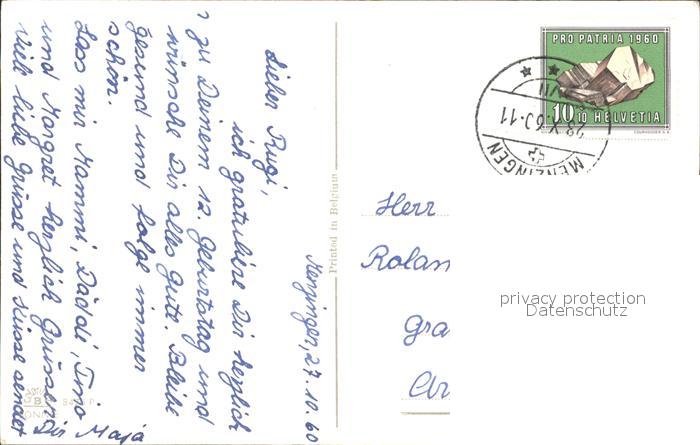 Menzingen, 27.10.60
Lieber Rugi,
ich gratuliere Dir herzlich
zu Deinem 12. Geburtstag und
wünsche Dir alles Gute. Bleibe
gesund und folge immer
schön.
Lass mir Mammi, Daddi, Tino
und Margret herzlich Grüssen
Viele liebe Grüsse und Küsse sendet
Dir Maja
Printed in Belgium
PRO PATRIA 1960
10+10 HELVETIA
COURVOISIER S.A.
MENZINGEN
28.X.60-11
Herr
Rolan
Gra
privacy protection
Datenschutz